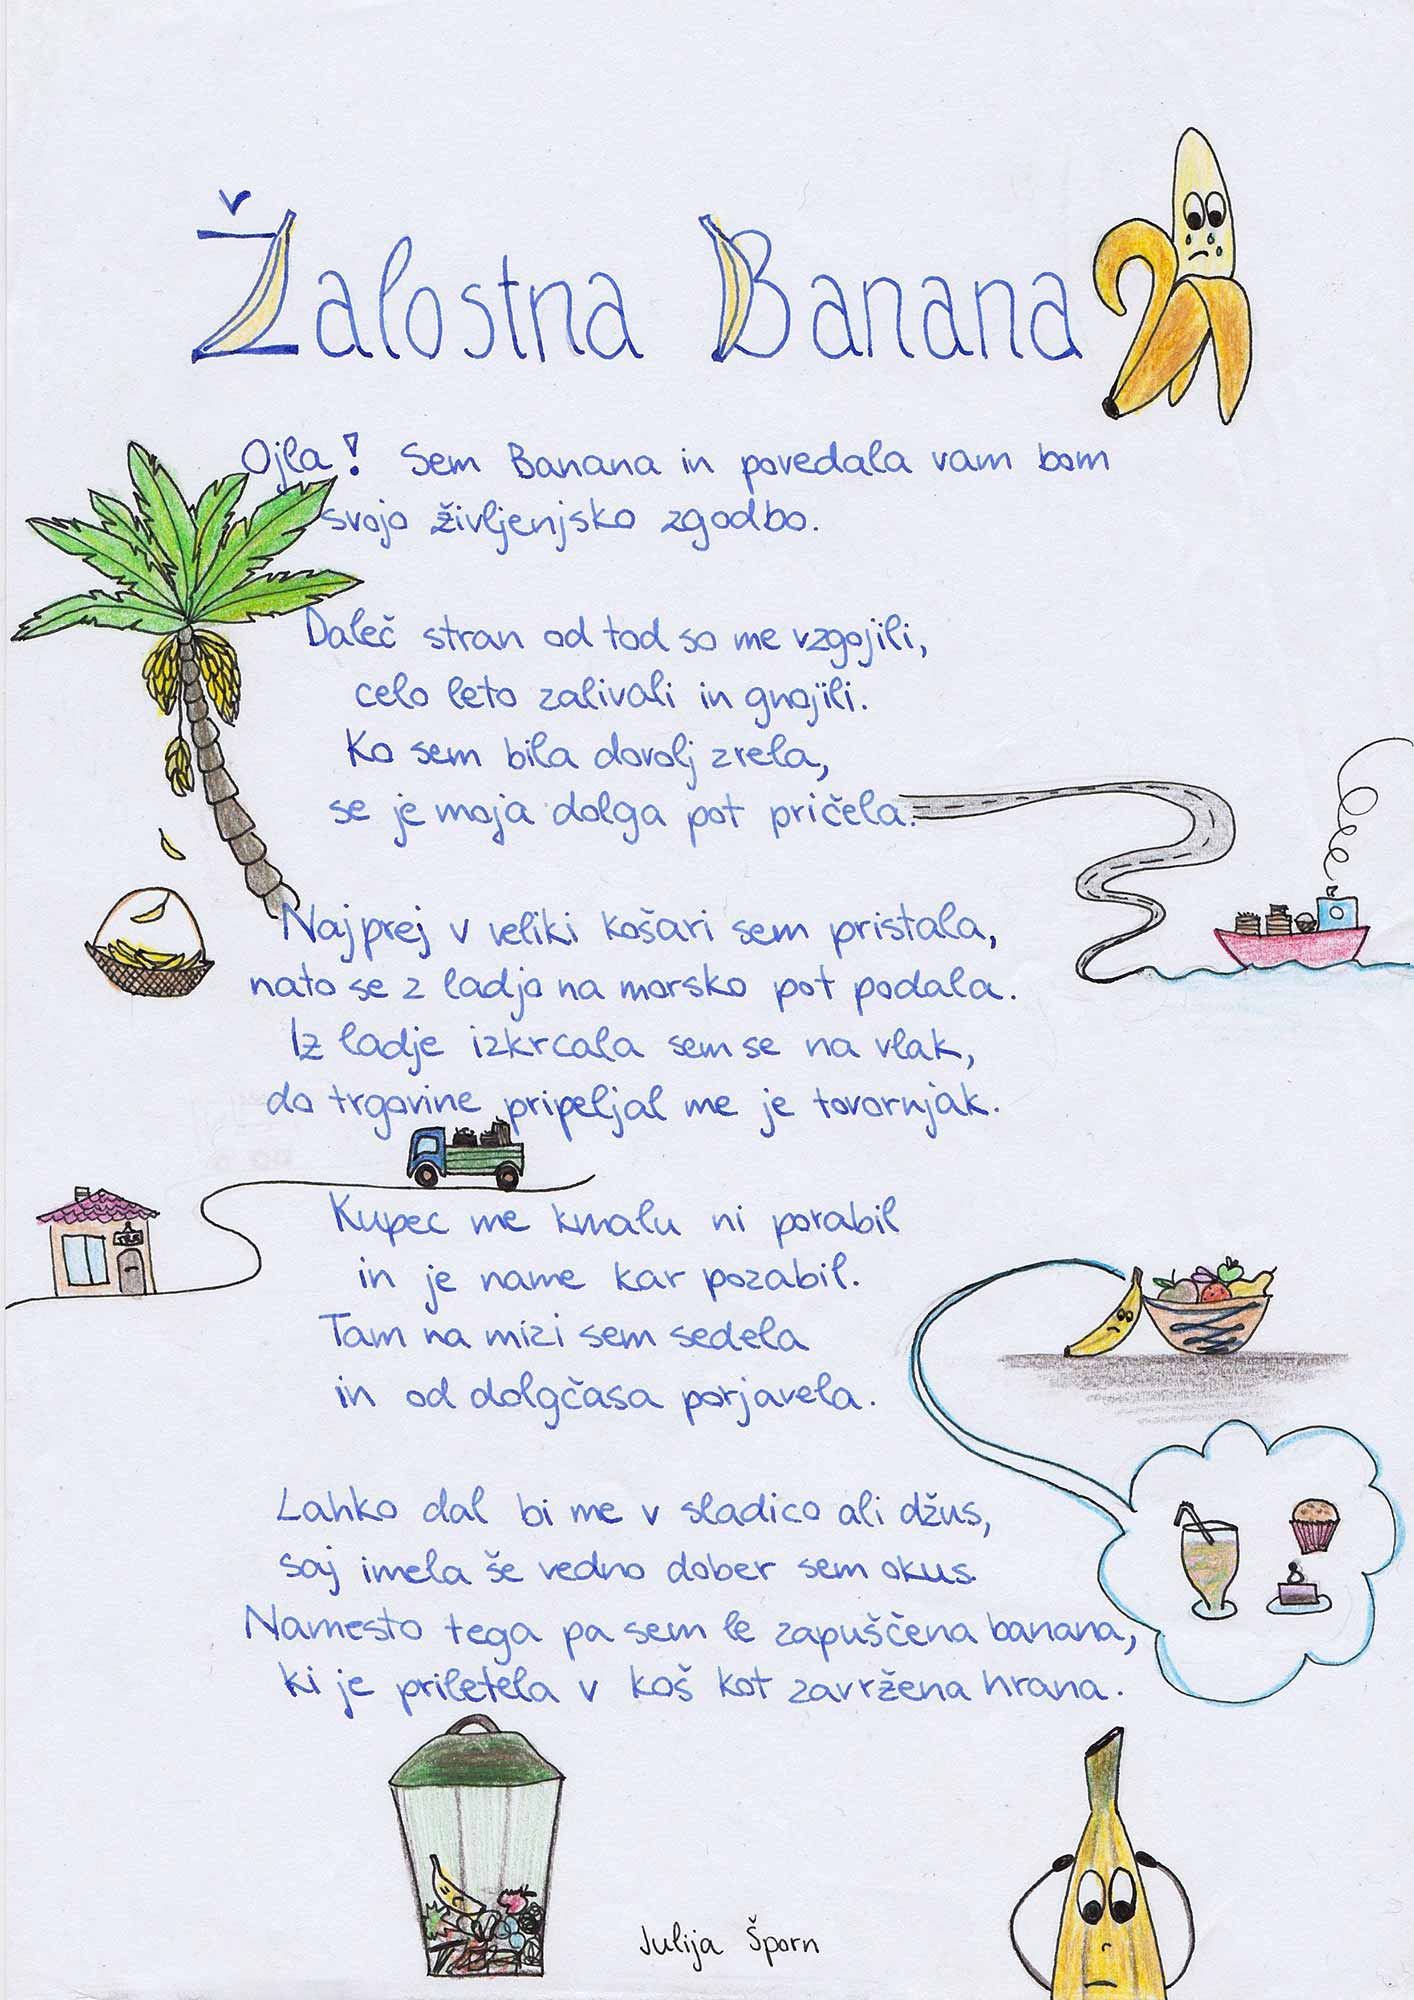 Žalostna Banana
Ojla! Sem Banana in povedala vam bom
svojo življenjsko zgodbo.
Daleč stran od tod so me vzgojili,
celo leto zalivali in gnojili.
Ko sem bila dovolj zrela,
se je moja dolga pot pričela.
Najprej v veliki košari sem pristala,
nato se z ladjo na morsko pot podala.
Iz ladje izkrcala sem se na vlak,
do trgovine pripeljal me je tovornjak.
Kupec me kmalu ni porabil
in je name kar pozabil.
Tam na mizi sem sedela
in od dolgčasa porjavela.
Lahko dal bi me v sladico ali džus,
saj imela še vedno dober sem okus.
Namesto tega pa sem le zapuščena banana,
ki je priletela v koš kot zavržena hrana.
Julija Šporn